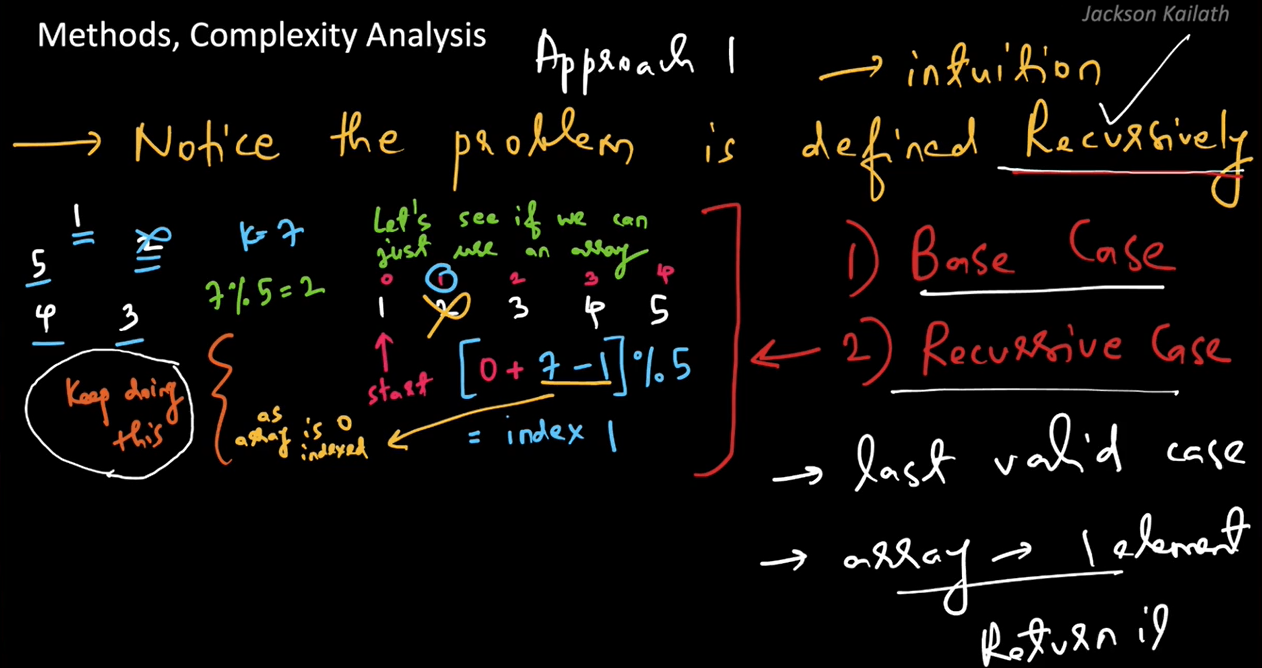 Jackson Kailath
Methods, Complexity Analysis
Approach 1
→ intuition
→ Notice the problem is defined Recursively
1
2
5
4 3
K=7
7%5=2
Let's see if we can
just use an array
0 1 2 3 4
1 2 3 4 5
start
[0+7-1]%5
= index 1
as
array is 0
indexed
Keep doing
this
1) Base Case
← 2) Recursive Case
→ last valid case
→ array → 1 element
Return it